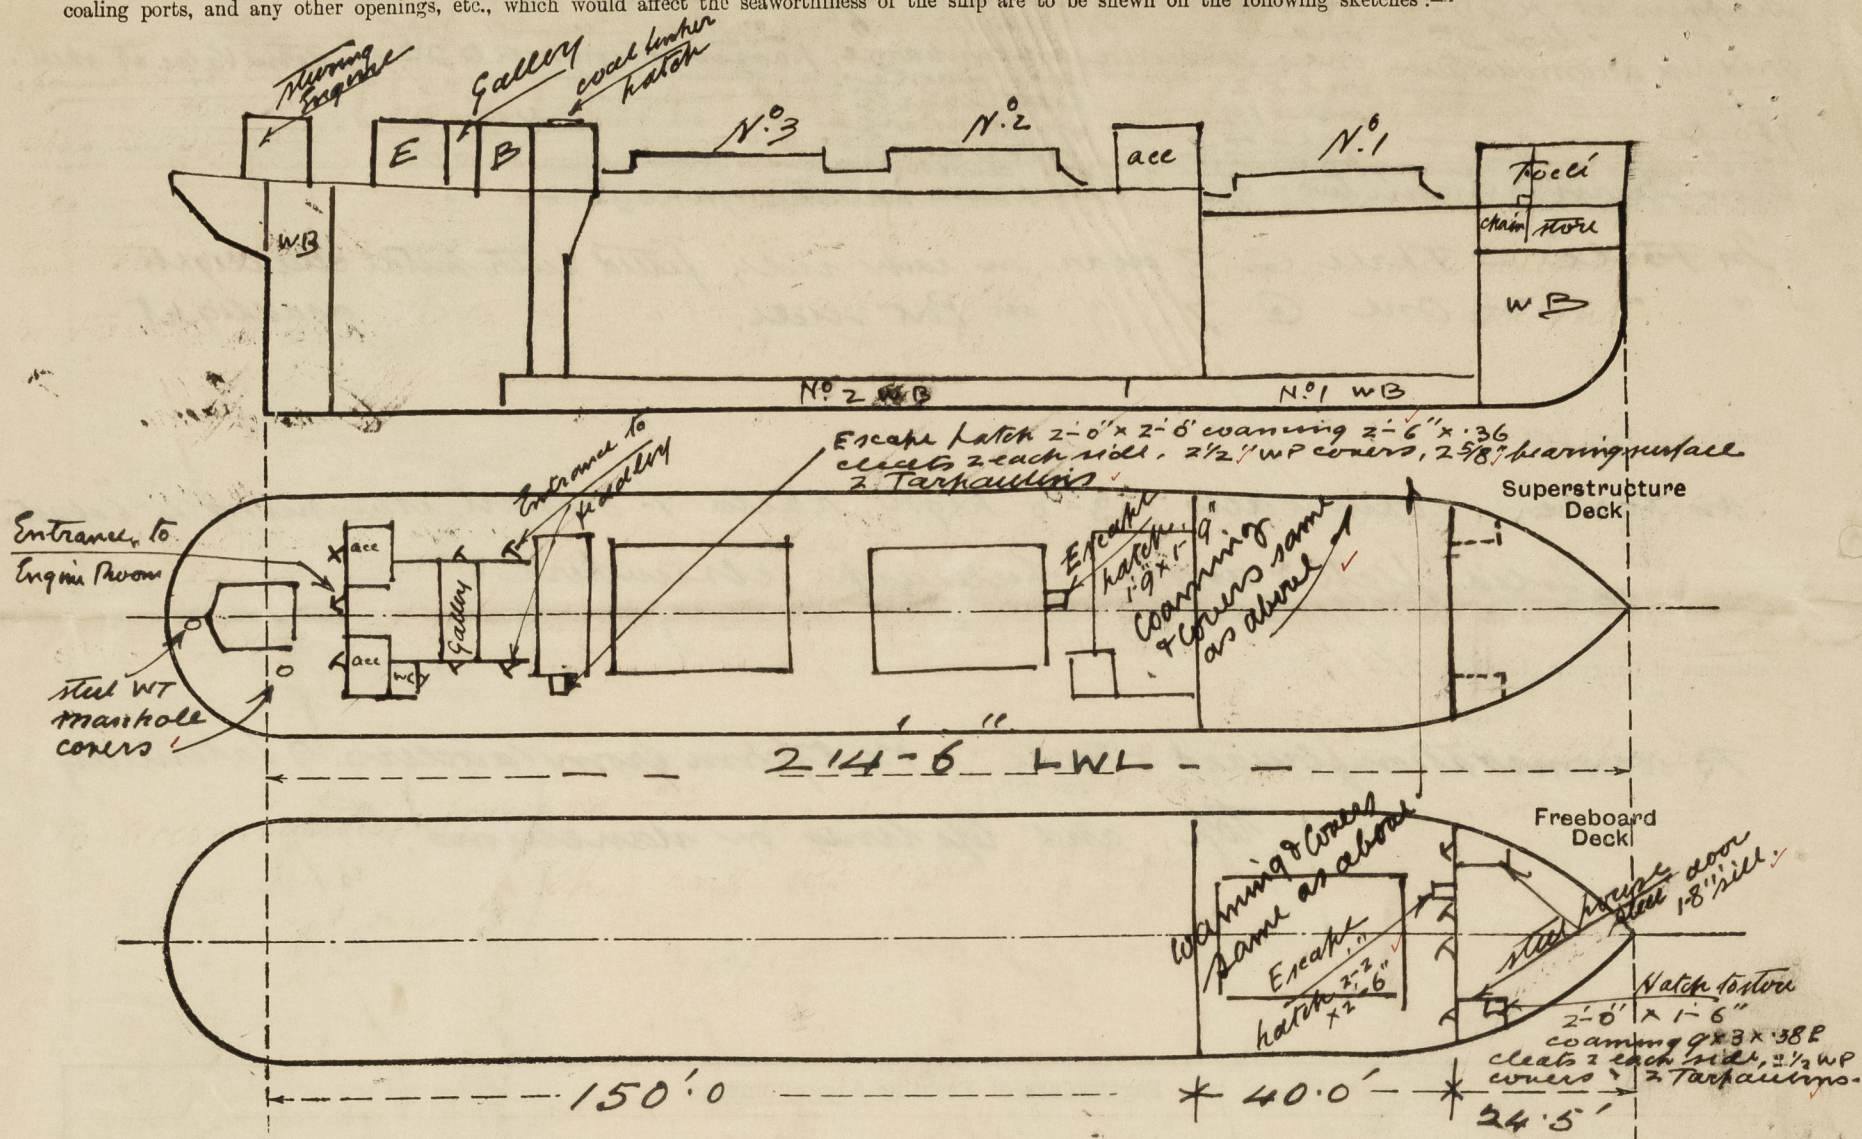 coaling ports, and any other openings, etc., which would affect the seaworthiness of the ship are to be shewn on the following sketches:—
steering
Engine
Galley
coal bunker
hatch
E
B
No. 3
No. 2
acc
No. 1
Focle
chain
store
WB
WB
No. 2 WB
No. 1 WB
Escape hatch 2'-0" x 2'-0" coaming 2'-6" x .36
cleats 2 each side, 2½" WP covers, 2 5/8" bearing surface
2 Tarpaulins
Superstructure
Deck
Entrance to
fiddley
Entrance to
Engine Room
acc
Galley
acc
WC
Escape
hatch
1'-9" x 1'-9"
Coaming
& covers same
as above
steel WT
manhole
covers
214'-6" LWL
Freeboard
Deck
coaming & covers
same as above
Escape
hatch 2'-2"
x 2'-6"
steel house door
steel 1'-8" sill.
Hatch to store
2'-0" x 1'-6"
coaming 9 x 3 x .38
cleats 2 each side, 2½ WP
covers & 2 Tarpaulins.
150'.0
40.0'
24.5'